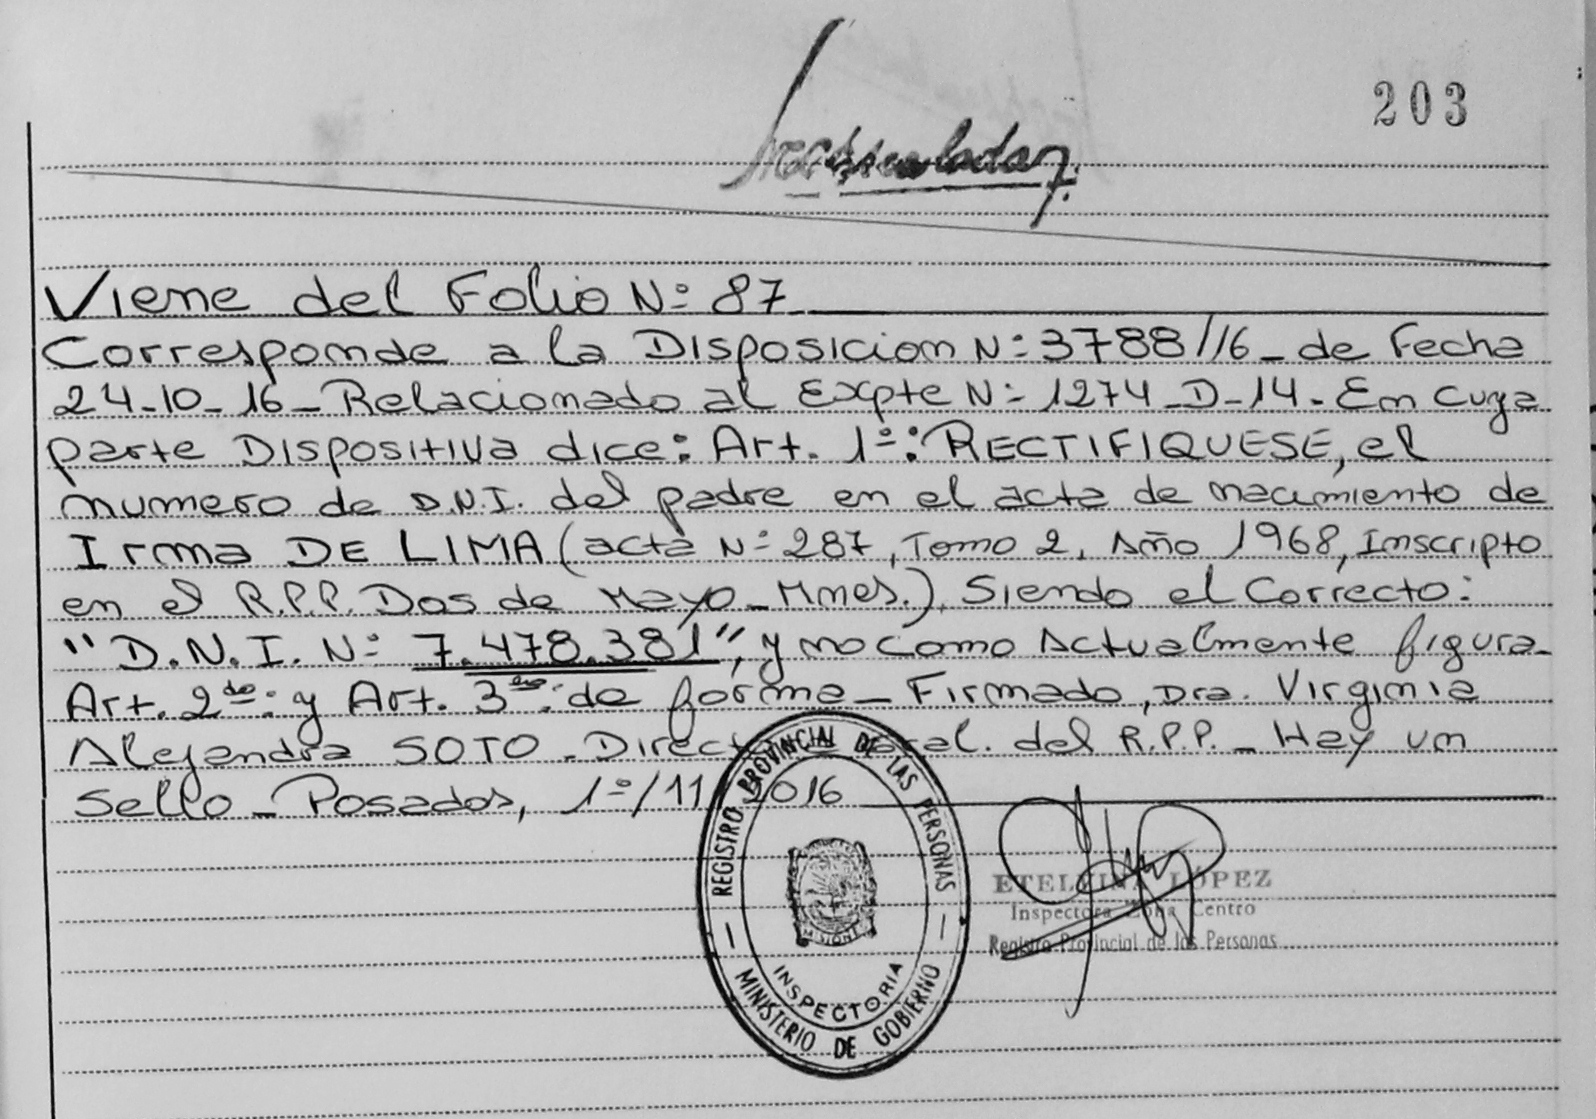 203
Viene del Folio Nº 87
Corresponde a la Disposicion Nº 3788/16 - de Fecha
24-10-16 - Relacionado al Expte Nº 1274-D-14. En Cuya
parte Dispositiva dice: Art. 1º: RECTIFIQUESE, el
numero de D.N.I. del padre en el acta de nacimiento de
Irma DE LIMA (acta Nº 287, Tomo 2, Año 1968, Inscripto
en el R.P.P. Dos de Mayo - Mnes.), Siendo el Correcto:
"D.N.I. Nº 7.478.381", y no como Actualmente figura.
Art. 2do: y Art. 3ero: de forma - Firmado, Dra. Virginia
Alejandra SOTO - Gral. del R.P.P. - Hay un
Sello - Posadas, 1º/11/2016
REGISTRO PROVINCIAL DE LAS PERSONAS
MISIONES
INSPECTORIA
MINISTERIO DE GOBIERNO
ETELVINA LÓPEZ
Inspectora Zona Centro
Registro Provincial de las Personas